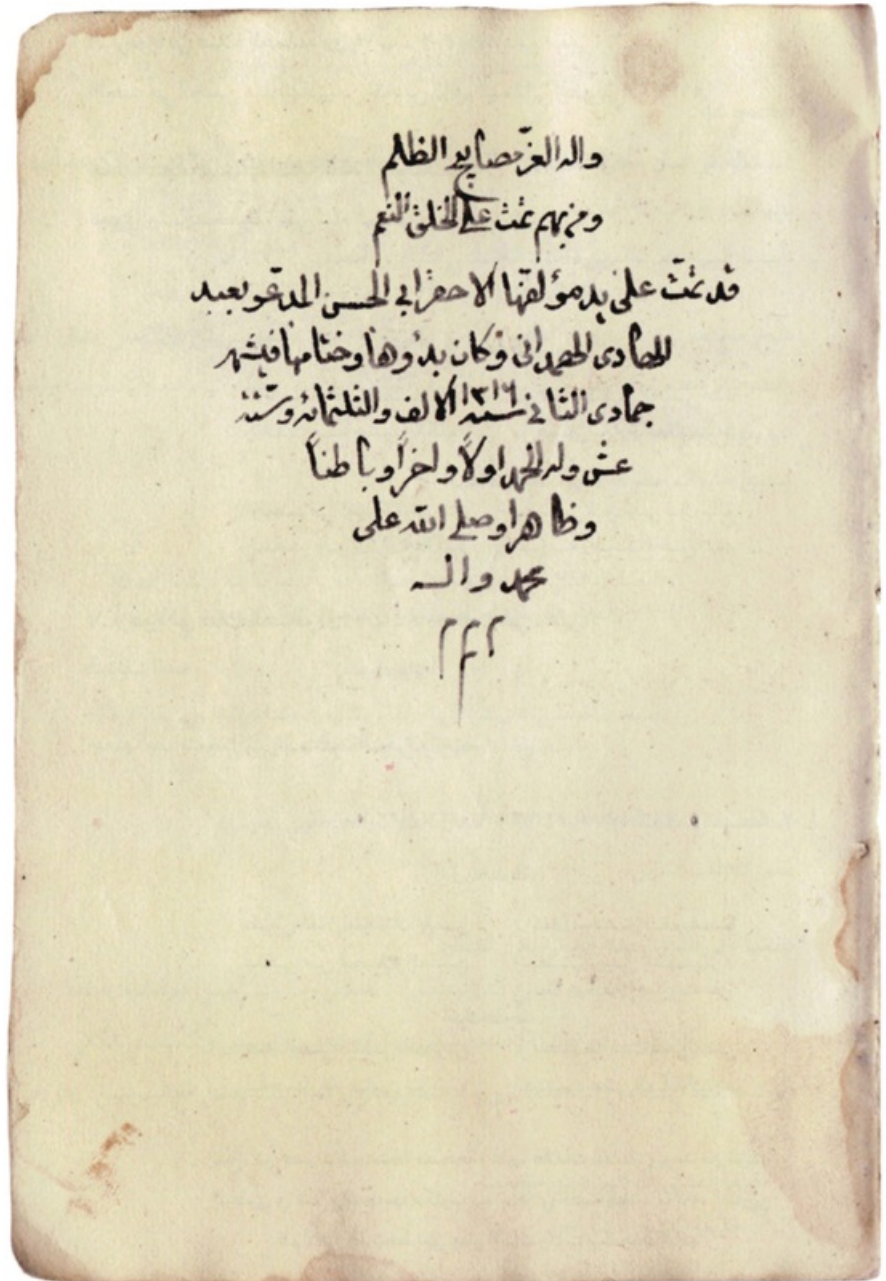 واله الغرّ مصابيح الظلم
ومن بهم تمت على الخلق النعم
قد تمّت على يد مؤلفها الاحقر ابي الحسن المدعو بعبد
الهادى الهمدانى وكان بدؤها وختامها فيشهر
جمادى الثانى سنة ١٣١٦ الالف والثلثمائة وستة
عشر وله الحمد اولاً واخراً وباطناً
وظاهرا وصلى الله على
محمد واله